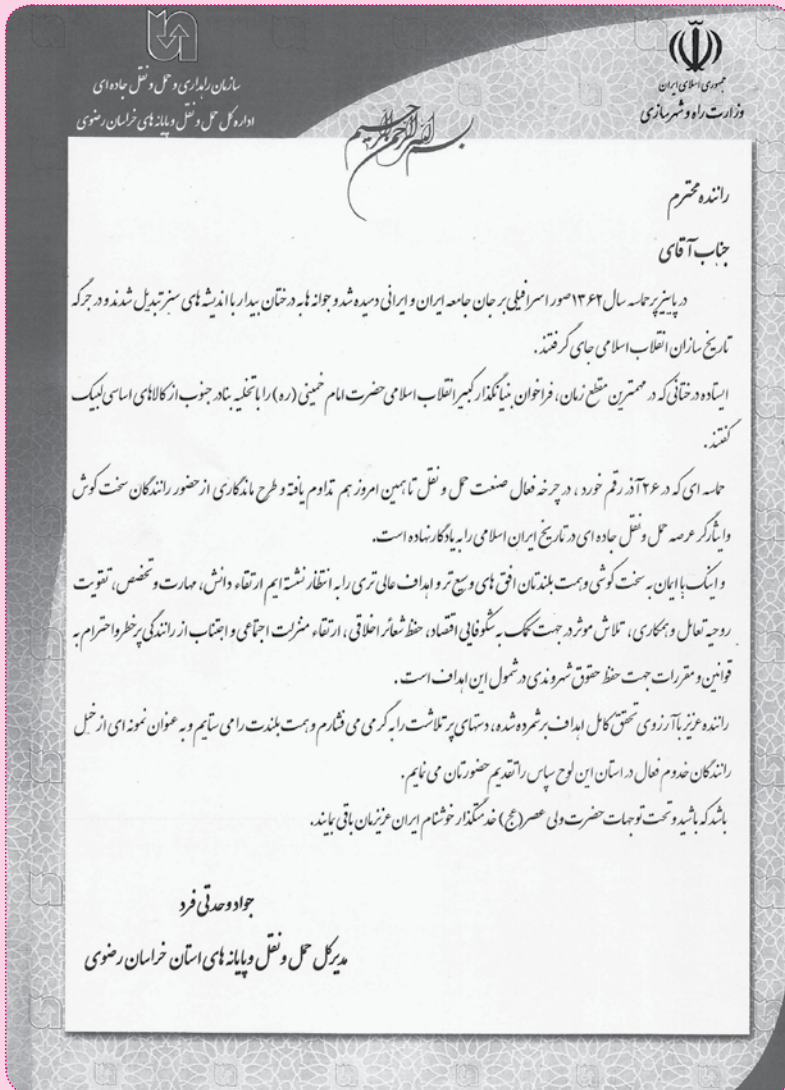 جمهوری اسلامی ایران
وزارت راه و شهرسازی
سازمان راهداری و حمل و نقل جاده ای
اداره کل حمل و نقل و پایانه های خراسان رضوی
بسم الله الرحمن الرحیم
راننده محترم
جناب آقای
در پاییز پر حماسه سال ۱۳۶۲ صور اسرافیلی بر جان جامعه ایران و ایرانی دمیده شد و جوانه ها به درختان بیدار با اندیشه های سبز تبدیل شدند و در جرگه
تاریخ سازان انقلاب اسلامی جای گرفتند.
ایستاده درختانی که در مهمترین مقطع زمان، فراخوان بنیانگذار کبیر انقلاب اسلامی حضرت امام خمینی (ره) را با تخلیه بنادر جنوب از کالاهای اساسی لبیک
گفتند.
حماسه ای که در ۲۶ آذر رقم خورد، در چرخه فعال صنعت حمل و نقل تا همین امروز هم تداوم یافته و طرح ماندگاری از حضور رانندگان سخت کوش
و ایثارگر عرصه حمل و نقل جاده ای در تاریخ ایران اسلامی را به یادگار نهاده است.
و اینک با ایمان به سخت کوشی و همت بلندتان افق های وسیع تر و اهداف عالی تری را به انتظار نشسته ایم ارتقاء دانش، مهارت و تخصص، تقویت
روحیه تعامل و همکاری، تلاش موثر در جهت کمک به شکوفایی اقتصاد، حفظ شعائر اخلاقی، ارتقاء منزلت اجتماعی و اجتناب از رانندگی پرخطر و احترام به
قوانین و مقررات جهت حفظ حقوق شهروندی در شمول این اهداف است.
راننده عزیز با آرزوی تحقق کامل اهداف برشمرده شده، دستهای پر تلاشت را به گرمی می فشارم و همت بلندت را می ستایم و به عنوان نمونه ای از خیل
رانندگان خدوم فعال در استان این لوح سپاس را تقدیم حضورتان می نمایم.
باشد که باشید و تحت توجهات حضرت ولی عصر (عج) خدمتگذار خوشنام ایران عزیزمان باقی بمانید.
جواد وحدتی فرد
مدیرکل حمل و نقل و پایانه های استان خراسان رضوی